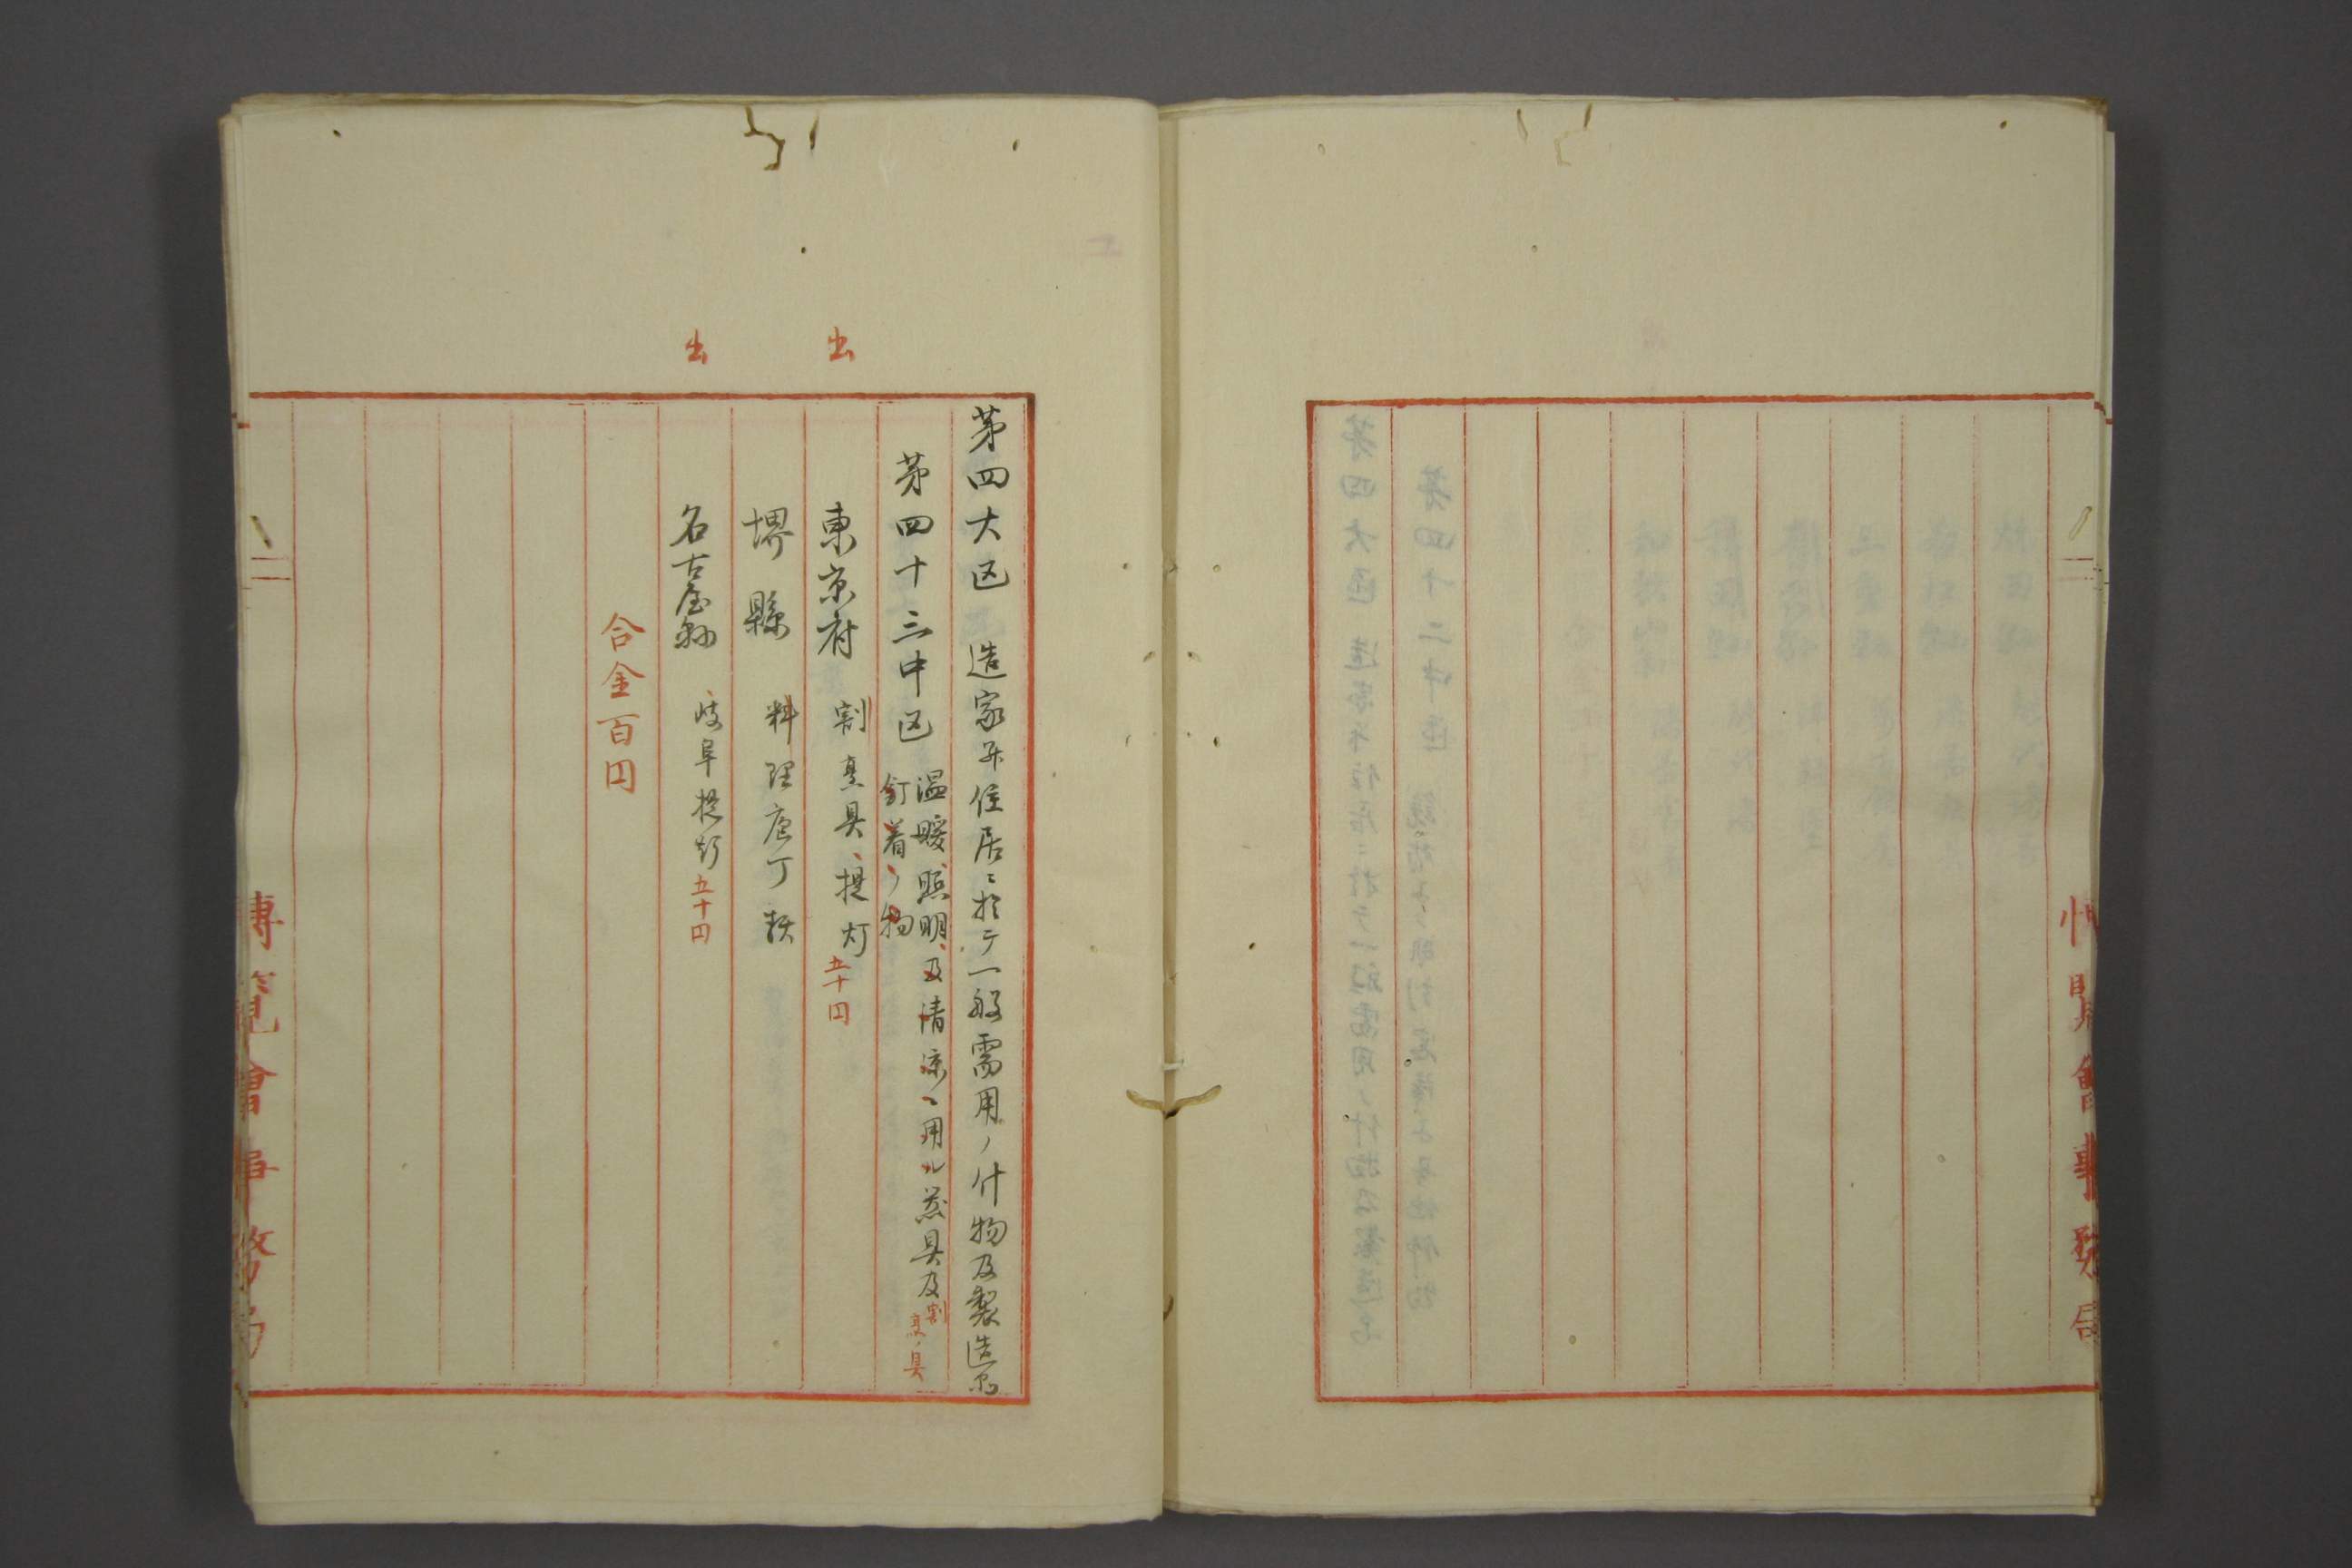 博覧會事務局
第四大区 造家并住居ニ於テ一般需用ノ什物及製造品
第四十三中区 温暖、照明、及清涼ニ用ル蒸具及割烹ノ具
釘着ノ物
出 東京府 割烹具、提灯 五十円
堺縣 料理庖丁類
出 名古屋縣 岐阜提灯 五十円
合金百円
博覧會事務局